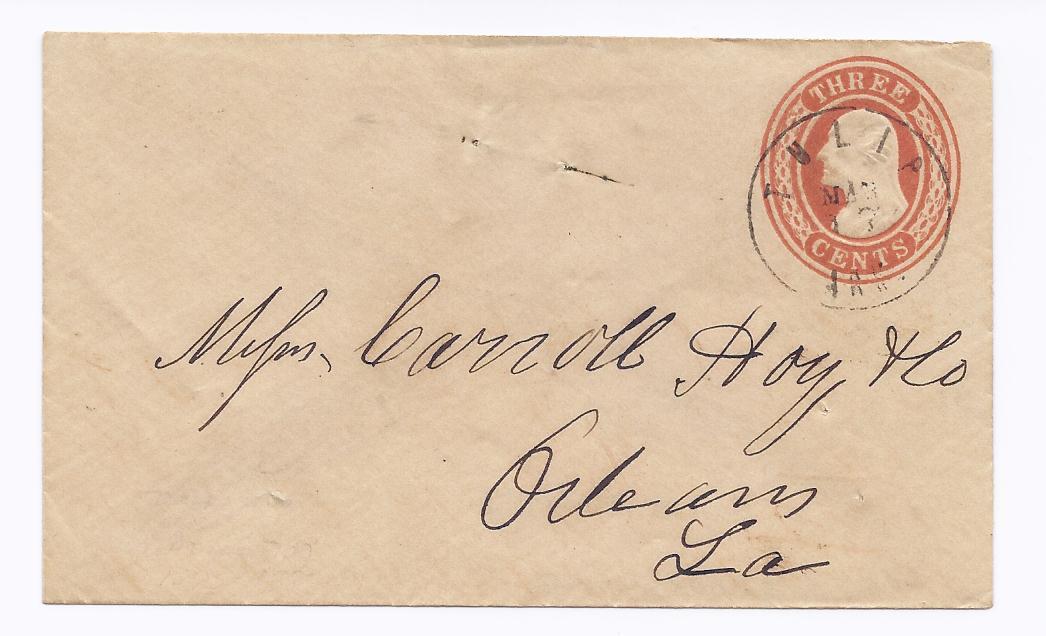 THREE
CENTS
TULIP
MAR
ARK.
Messrs. Carroll Hoy & Co
Orleans
La